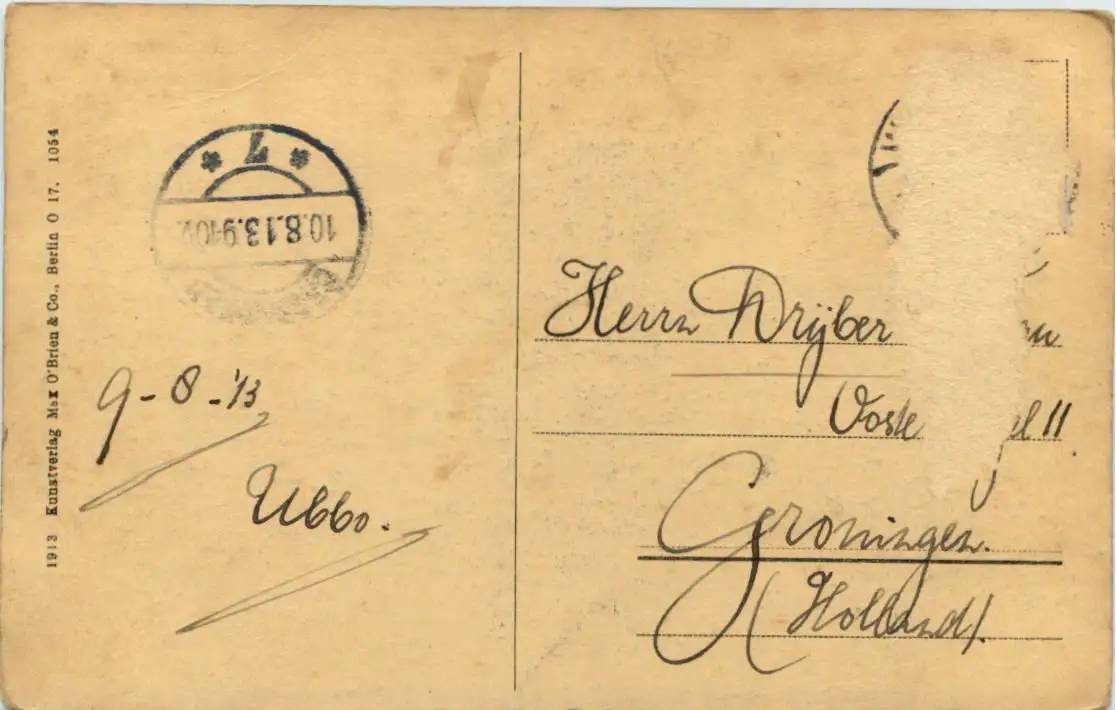 1913 Kunstverlag Max O'Brien & Co., Berlin O 17. 1054
* L *
10.8.13.9-10V.
9-8-'13
Ubbo.
Herrn Drijber
Ooste
11
Groningen.
(Holland).